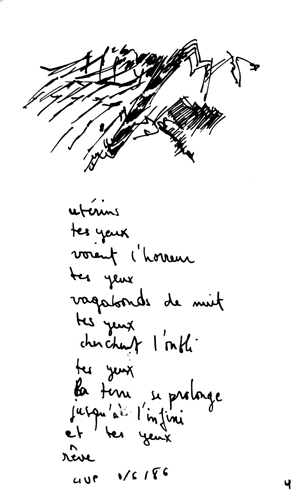 utérins
tes yeux
voient l'horreur
tes yeux
vagabonds de nuit
tes yeux
cherchent l'oubli
tes yeux
la terre se prolonge
jusqu'à l'infini
et tes yeux
rêve
1/6/86
4